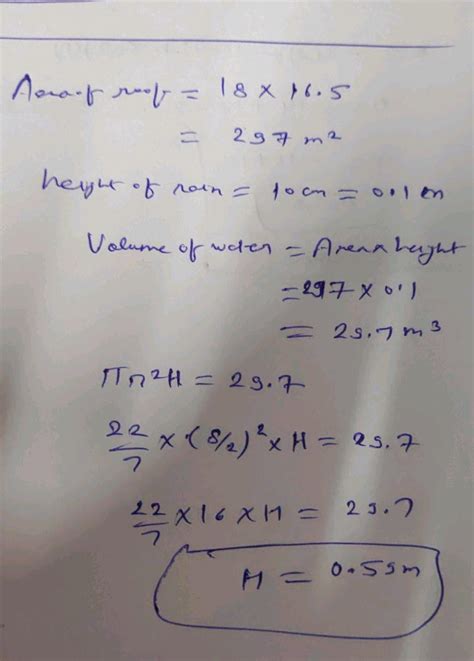 Area of roof = 18 × 16.5
= 297 m²
height of rain = 10 cm = 0.1 m
Volume of water = Area × height
= 297 × 0.1
= 29.7 m³
πr²H = 29.7
22/7 × (8/2)² × H = 29.7
22/7 × 16 × H = 29.7
H = 0.59m